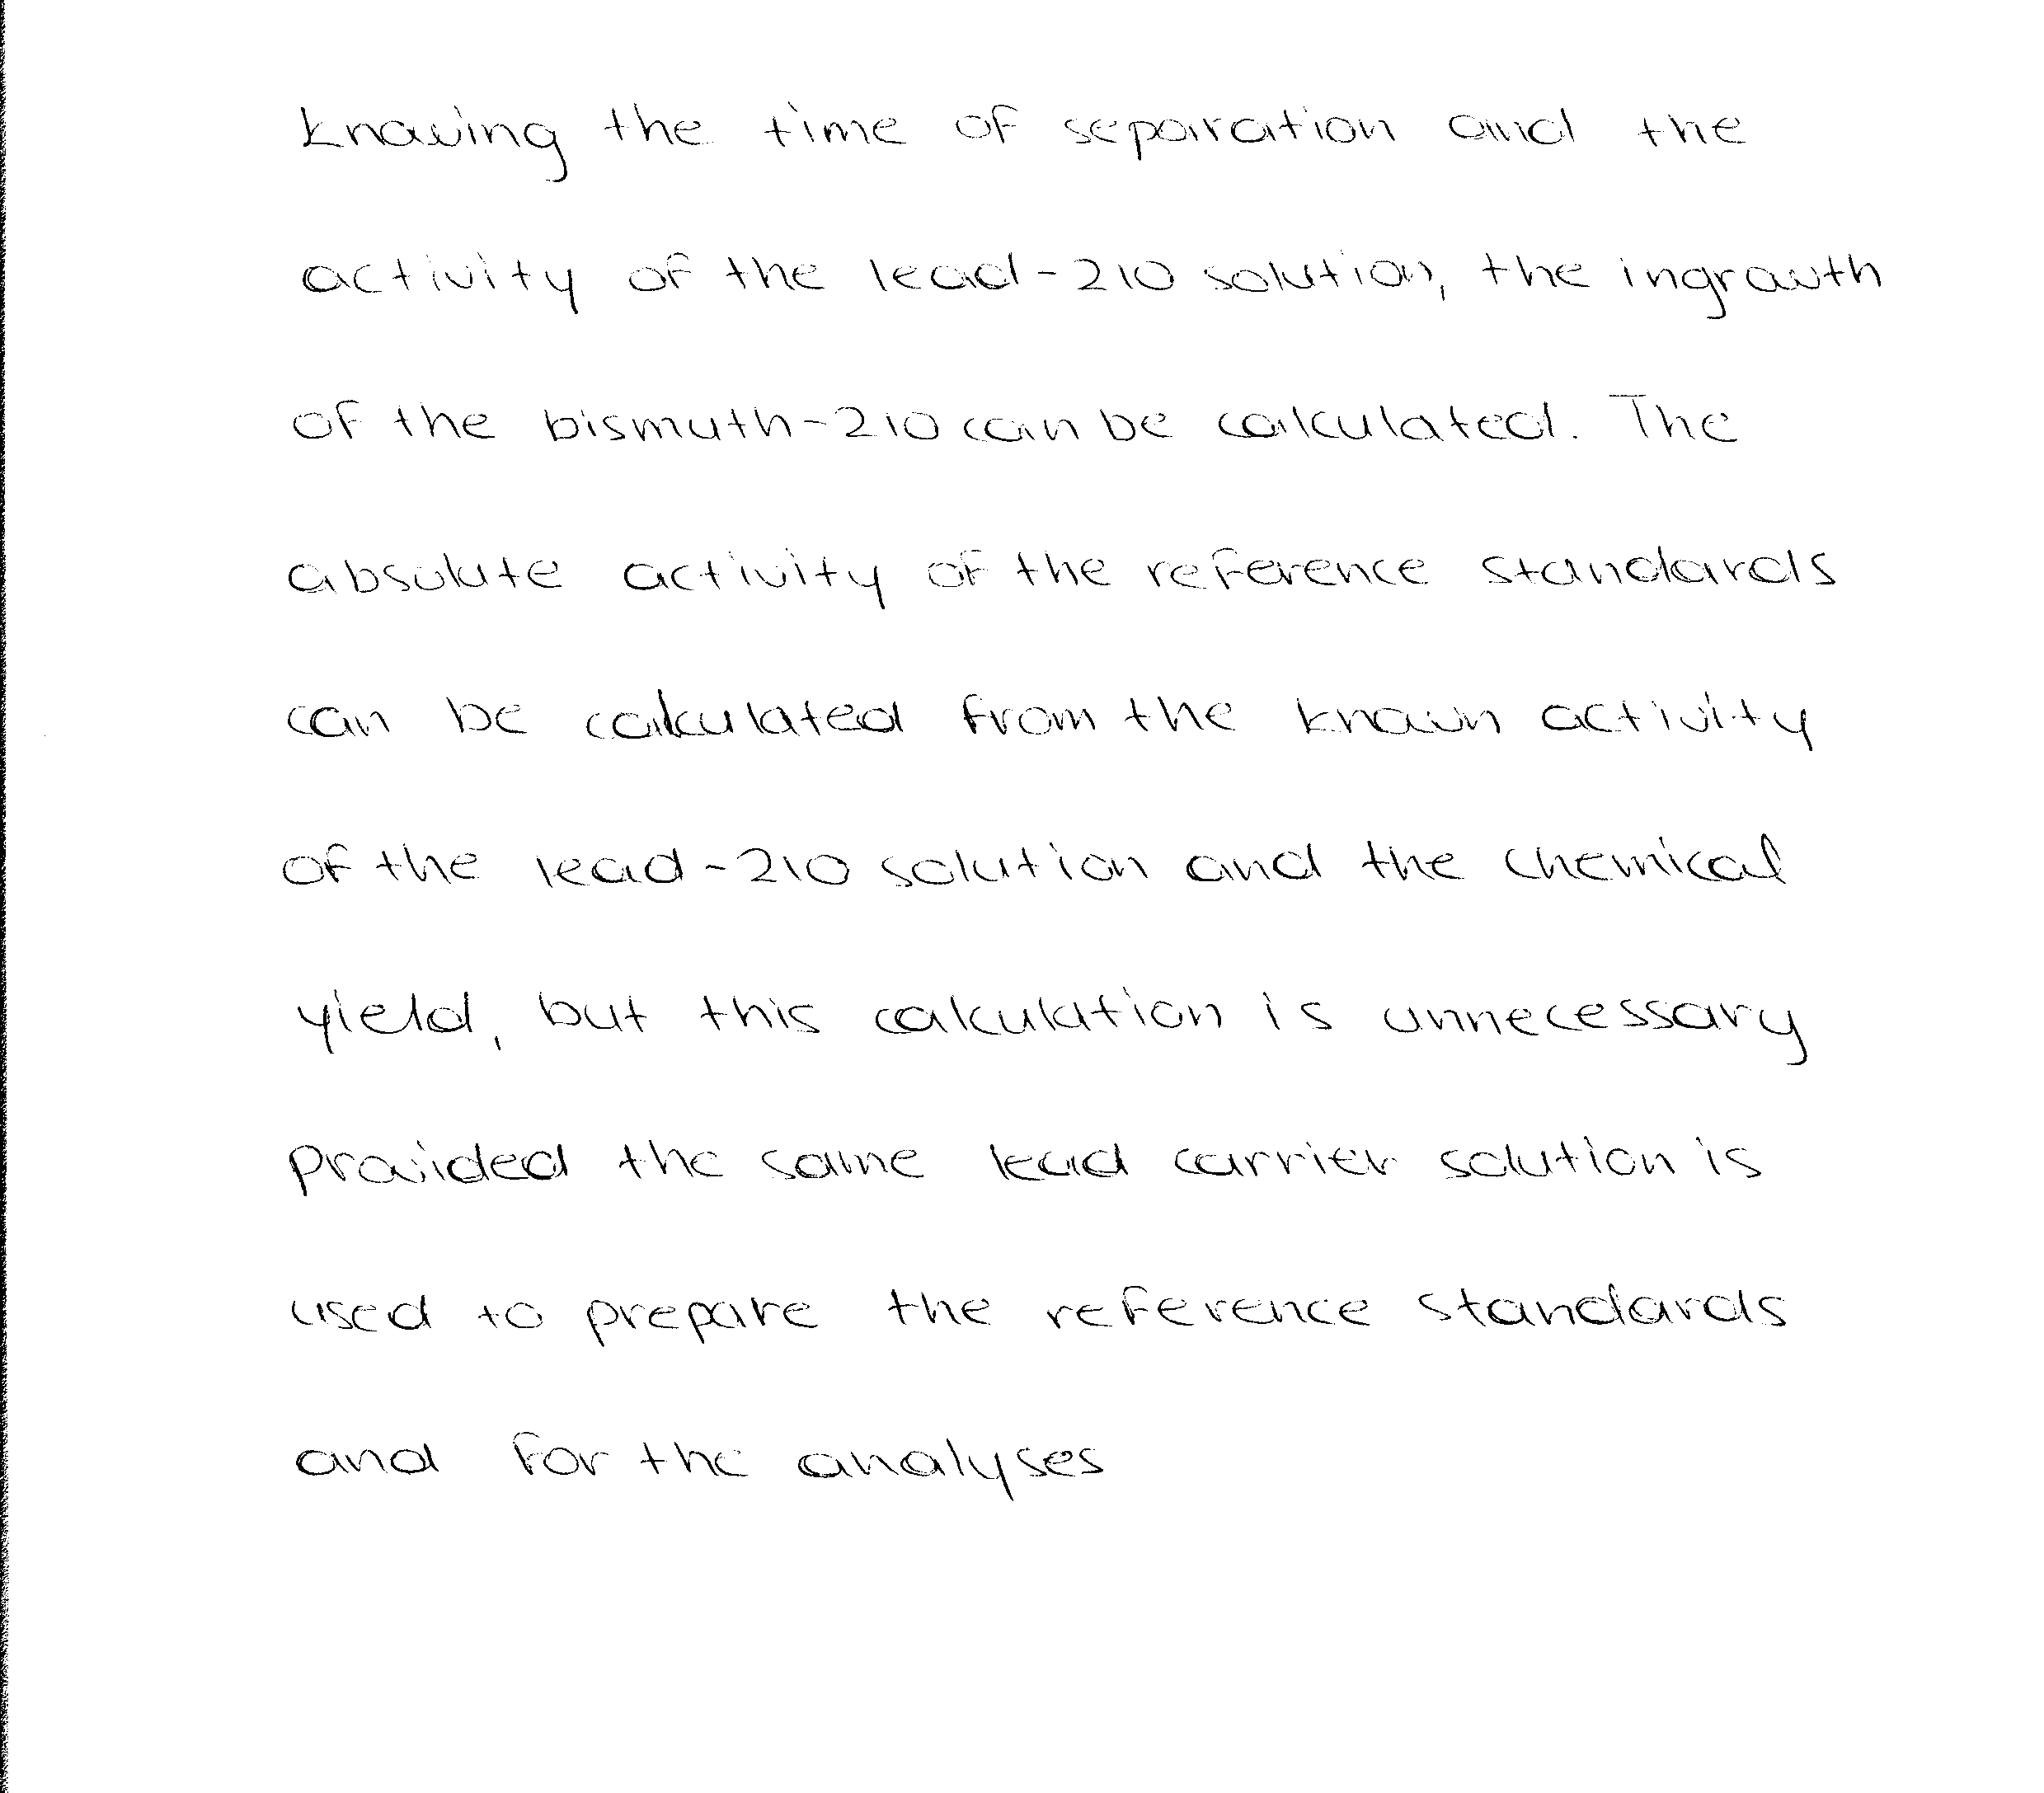 Knowing the time of separation and the
activity of the lead-210 solution, the ingrowth
of the bismuth-210 can be calculated. The
absolute activity of the reference standards
can be calculated from the known activity
of the lead-210 solution and the chemical
yield, but this calculation is unnecessary
provided the same lead carrier solution is
used to prepare the reference standards
and for the analyses